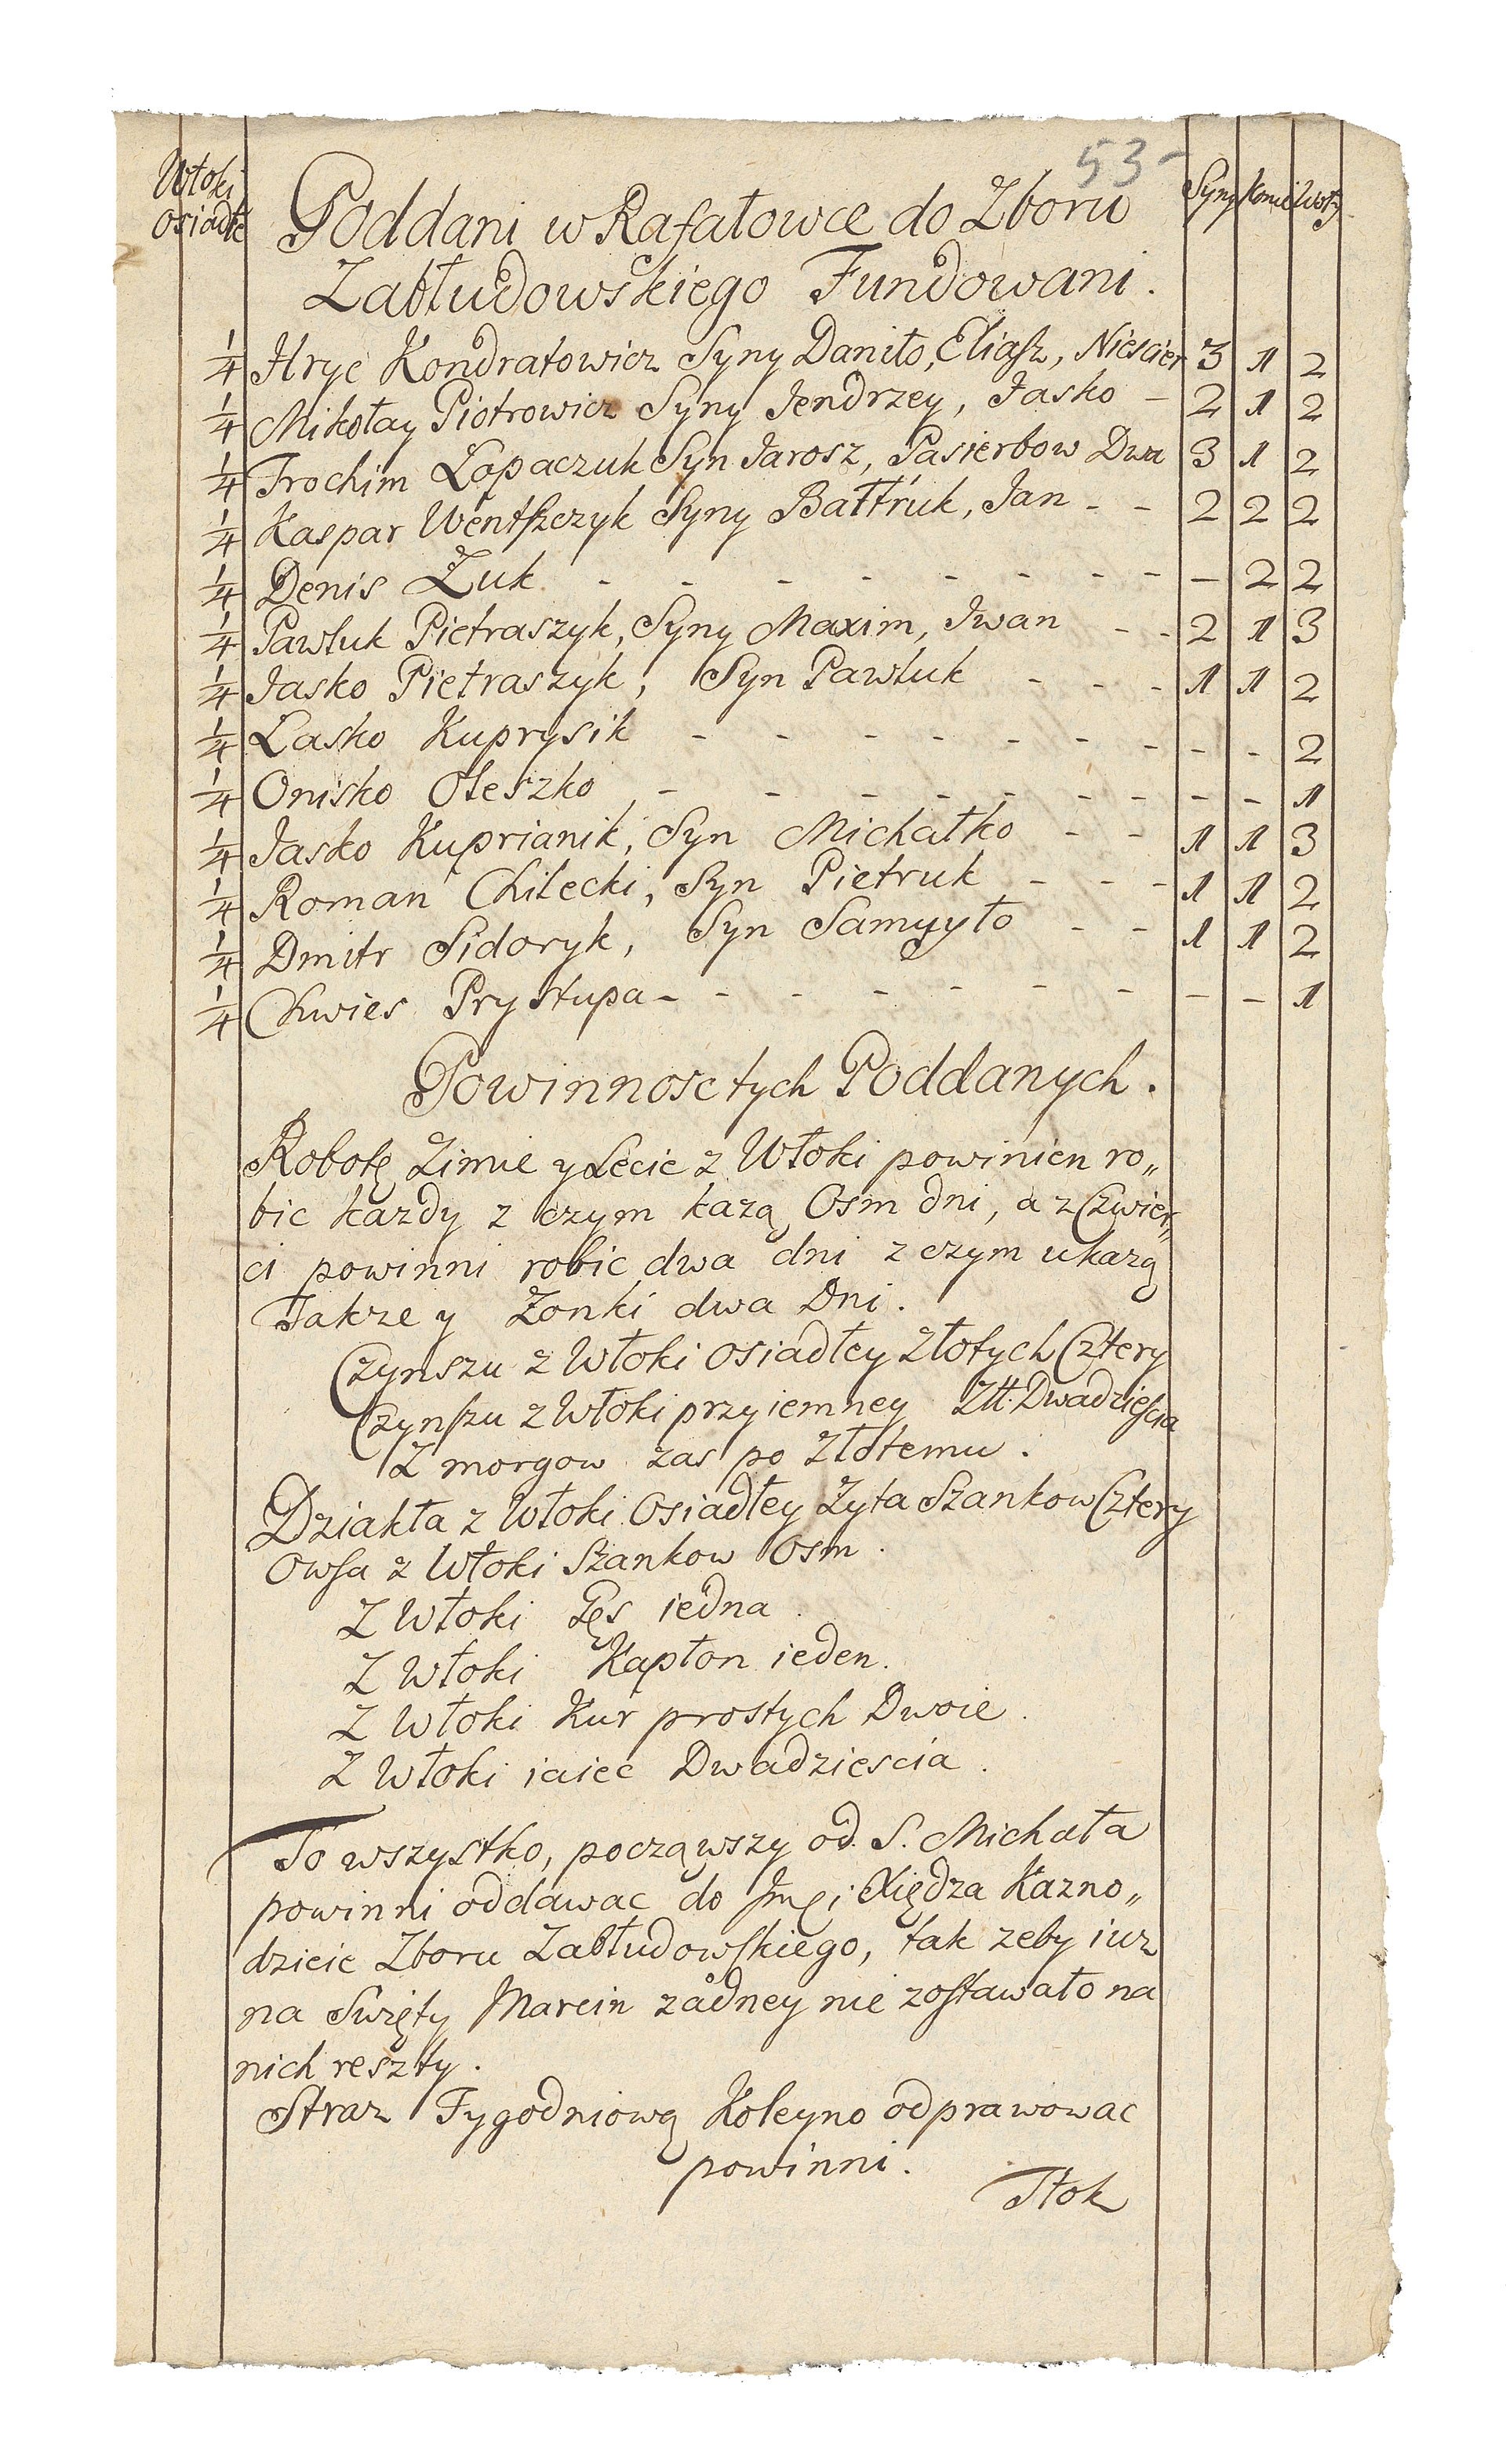 53-
Włoki osiadłe
Poddani w Rafałowce do Zboru
Syny Konie Woły
Zabłudowskiego Fundowani.
1/4 Hryc Kondratowicz Syny Daniło, Eliasz, Niescier 3 1 2
1/4 Mikołay Piotrowicz Syny Jendrzey, Jasko - 2 1 2
1/4 Trochim Łopaczuk Syn Jarosz, Pasierbow Dwa 3 1 2
1/4 Kaspar Wentszczyk Syny Bałtruk, Jan - - 2 2 2
1/4 Denis Żuk - - - - - - - - - 2 2
1/4 Pawluk Pietraszyk, Syny Maxim, Iwan - - 2 1 3
1/4 Jasko Pietraszyk, Syn Pawluk - - - 1 1 2
1/4 Łasko Kuprysik - - - - - - - - - 2
1/4 Onisko Oleszko - - - - - - - - - 1
1/4 Jasko Kuprianik, Syn Michałko - - 1 1 3
1/4 Roman Chilecki, Syn Pietruk - - - 1 1 2
1/4 Dmitr Sidoryk, Syn Samuyło - - 1 1 2
1/4 Chwies Prystupa - - - - - - - - - 1
Powinnosc tych Poddanych.
Robotę Zimie y Lecie z Włoki powinien ro„
bic kazdy z czym kazą Osm dni, a z Czwier„
ci powinni robic dwa dni z czym ukazą
Takze y Zonki dwa Dni.
Czynszu z Włoki osiadłey Złotych Cztery
Czynszu z Włoki przyiemney Złł. Dwadziescia
Z morgow zas po Złotemu.
Dziakła z Włoki Osiadłey Zyta Szankow Cztery
Owsa z Włoki Szankow Osm.
Z Włoki Gęs iedna.
Z Włoki Kapłon ieden.
Z Włoki Kur prostych Dwoie.
Z Włoki iaiec Dwadziescia.
To wszystko, począwszy od S. Michała
powinni oddawac do Jmęi Xiędza Kazno„
dzieie Zboru Zabłudowskiego, tak zeby iuz
na Swięty Marcin zadney nie zostawało na
nich reszty.
Straz Tygodniową Koleyno odprawowac
powinni.
Tłok